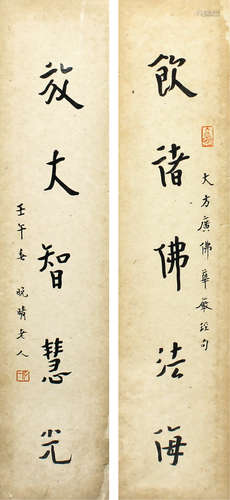 飲諸佛法海
大方廣佛華嚴經句
放大智慧光
壬午春 晚晴老人